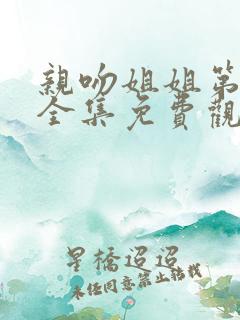 親吻姐姐第
全集免費觀
星橋迢迢
未經同意禁止轉載